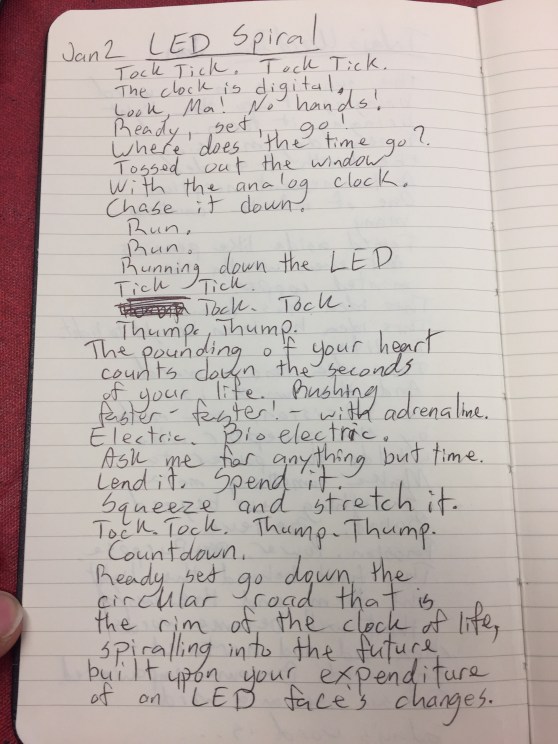 Jan 2 LED Spiral
Tock Tick. Tock Tick.
The clock is digital.
Look, Ma! No hands!
Ready, set, go!
Where does the time go?
Tossed out the window
With the analog clock.
Chase it down.
Run.
Run.
Running down the LED
Tick Tick.
Tock. Tock.
Thump. Thump.
The pounding of your heart
counts down the seconds
of your life. Rushing
faster - faster! - with adrenaline.
Electric. Bio electric.
Ask me for anything but time.
Lend it. Spend it.
Squeeze and stretch it.
Tock. Tock. Thump. Thump.
Countdown.
Ready set go down the
circular road that is
the rim of the clock of life,
spiralling into the future
built upon your expenditure
of an LED face's changes.